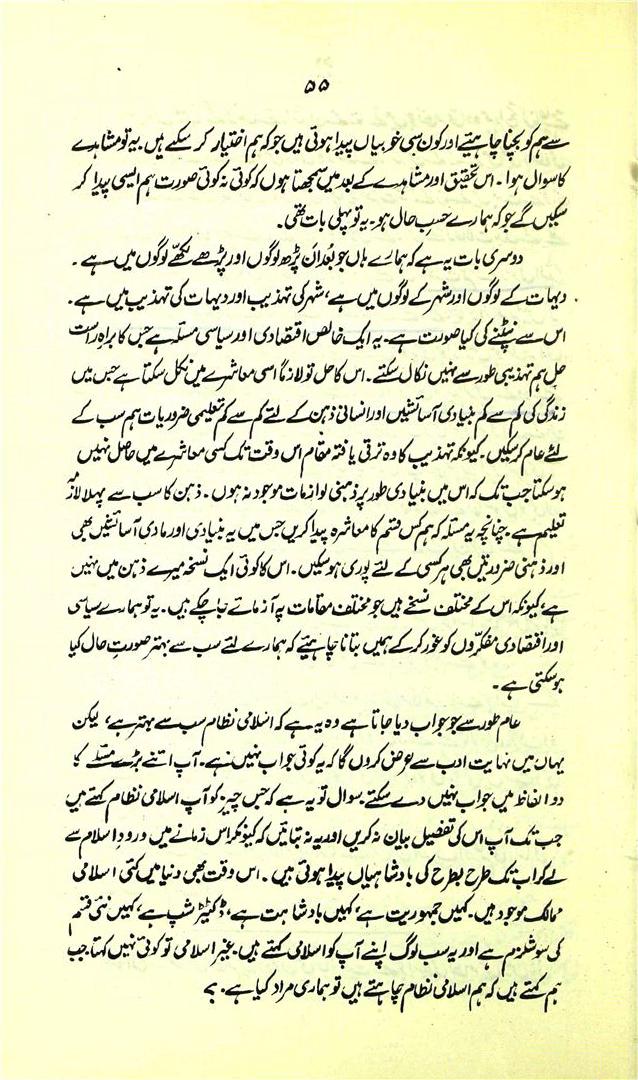 ۵۵
سے ہم کو بچنا چاہئیے اور کون سی خوبیاں پیدا ہوتی ہیں جو کہ ہم اختیار کر سکے ہیں۔ یہ تو مشاہدے
کا سوال ہوا۔ اس تحقیق اور مشاہدے کے بعد میں سمجھتا ہوں کہ کوئی نہ کوئی صورت ہم ایسی پیدا کر
سکیں گے جو کہ ہمارے حسبِ حال ہو۔ یہ تو پہلی بات تھی۔
دوسری بات یہ ہے کہ ہمارے ہاں جو بُعد اَن پڑھ لوگوں اور پڑھے لکھّے لوگوں میں ہے۔
دیہات کے لوگوں اور شہر کے لوگوں میں ہے، شہر کی تہذیب اور دیہات کی تہذیب میں ہے۔
اس سے نپٹنے کی کیا صورت ہے۔ یہ ایک خالص اقتصادی اور سیاسی مسئلہ ہے جس کا براہِ راست
حل ہم تہذیبی طور سے نہیں نکال سکتے۔ اس کا حل تو لازماً اسی معاشرے میں نکل سکتا ہے جس میں
زندگی کی کم سے کم بنیادی آسائشیں اور انسانی ذہن کے لئے کم سے کم تعلیمی ضروریات ہم سب کے
لئے عام کر سکیں۔ کیونکہ تہذیب کا وہ ترقی یافتہ مقام اس وقت تک کسی معاشرے میں حاصل نہیں
ہو سکتا جب تک کہ اس میں بنیادی طور پر ذہنی لوازمات موجود نہ ہوں۔ ذہن کا سب سے پہلا لازمہ
تعلیم ہے۔ چنانچہ یہ مسئلہ کہ ہم کس قسم کا معاشرہ پیدا کریں جس میں یہ بنیادی اور مادی آسائشیں بھی
اور ذہنی ضرورتیں بھی ہر کسی کے لئے پوری ہو سکیں۔ اس کا کوئی ایک نسخہ میرے ذہن میں نہیں
ہے، کیونکہ اس کے مختلف نسخے ہیں جو مختلف مقامات پہ آزمائے جا چکے ہیں۔ یہ تو ہمارے سیاسی
اور اقتصادی مفکّروں کو غور کر کے ہمیں بتانا چاہئیے کہ ہمارے لئے سب سے بہتر صورتِ حال کیا
ہو سکتی ہے۔
عام طور سے جو جواب دیا جاتا ہے وہ یہ ہے کہ اسلامی نظام سب سے بہتر ہے، لیکن
یہاں میں نہایت ادب سے عرض کروں گا کہ یہ کوئی جواب نہیں ہے۔ آپ اتنے بڑے مسئلے کا
دو الفاظ میں جواب نہیں دے سکتے۔ سوال تو یہ ہے کہ جس چیز کو آپ اسلامی نظام کہتے ہیں
جب تک آپ اس کی تفصیل بیان نہ کریں اور یہ نہ بتائیں کہ کیونکر اس زمانے میں ورودِ اسلام سے
لے کر اب تک طرح بطرح کی بادشاہیاں پیدا ہوتی ہیں۔ اس وقت بھی دنیا میں کئی اسلامی
ممالک موجود ہیں۔ کہیں جمہوریت ہے، کہیں بادشاہت ہے، ڈکٹیٹر شپ ہے، کہیں نئی قسم
کی سوشلزم ہے اور یہ سب لوگ اپنے آپ کو اسلامی کہتے ہیں۔ غیر اسلامی تو کوئی نہیں کہتا جب
ہم کہتے ہیں کہ ہم اسلامی نظام چاہتے ہیں تو ہماری مراد کیا ہے۔